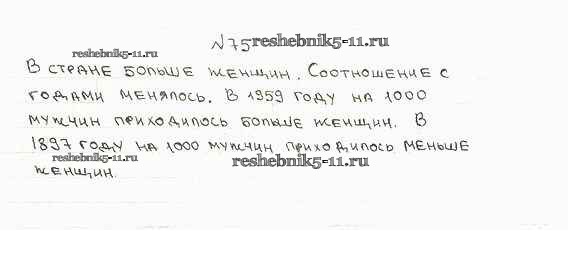 №75 reshebnik5-11.ru
reshebnik5-11.ru
В СТРАНЕ БОЛЬШЕ ЖЕНЩИН. СООТНОШЕНИЕ С
ГОДАМИ МЕНЯЛОСЬ. В 1959 ГОДУ НА 1000
МУЖЧИН ПРИХОДИЛОСЬ БОЛЬШЕ ЖЕНЩИН. В
1897 ГОДУ НА 1000 МУЖЧИН ПРИХОДИЛОСЬ МЕНЬШЕ
reshebnik5-11.ru reshebnik5-11.ru
ЖЕНЩИН.